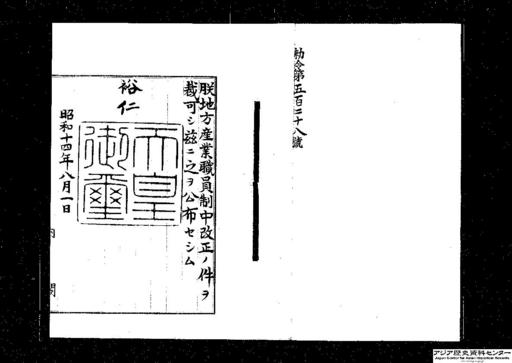 勅令第五百二十八號
朕地方産業職員制中改正ノ件ヲ
裁可シ茲ニ之ヲ公布セシム
裕仁
天皇
御璽
昭和十四年八月一日
内閣
アジア歴史資料センター
Japan Center for Asian Historical Records